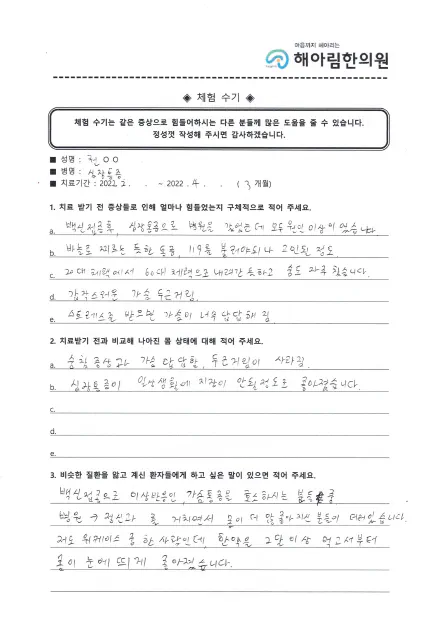 마음까지 헤아리는
해아림한의원
◈ 체험 수기 ◈
체험 수기는 같은 증상으로 힘들어하시는 다른 분들께 많은 도움을 줄 수 있습니다.
정성껏 작성해 주시면 감사하겠습니다.
■ 성명 : 전 OO
■ 병명 : 심장통증
■ 치료기간 : 2022. 2 . . ~ 2022 . 4 . ( 3 개월)
1. 치료 받기 전 증상들로 인해 얼마나 힘들었는지 구체적으로 적어 주세요.
a. 백신접종후, 심장통증으로 병원을 갔었는데 모두 원인 이상이 없습니다.
b. 바늘로 찌르는 듯한 통증, 119를 불러야되나 고민된 정도
c. 20대 체력에서 60대 체력으로 내려간 듯하고 숨도 자주 찼습니다.
d. 갑작스러운 가슴 두근거림.
e. 스트레스를 받으면 가슴이 너무 답답해 짐.
2. 치료받기 전과 비교해 나아진 몸 상태에 대해 적어 주세요.
a. 숨참 증상과 가슴 답답함, 두근거림이 사라짐.
b. 심장통증이 일상생활에 지장이 안될정도로 좋아졌습니다.
c.
d.
e.
3. 비슷한 질환을 앓고 계신 환자들에게 하고 싶은 말이 있으면 적어 주세요.
백신접종으로 이상반응인 가슴통증을 호소하시는 분들 중
병원 → 정신과 를 거치면서 몸이 더 안 좋아지신 분들이 더러있습니다.
저도 위케이스 중 한 사람인데, 한약을 2달이상 먹고서부터
몸이 눈에 띄게 좋아졌습니다.